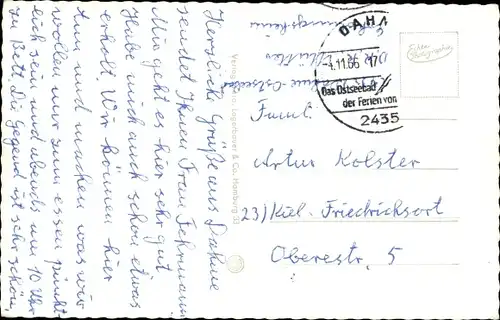 Herzliche Grüße aus Dahme
sendet Ihnen Frau Fehrmann.
Mir geht es hier sehr gut
Habe mich auch schon etwas
erholt. Wir können hier
tun und machen was wir
wollen nur zum essen pünkt-
lich sein und abends um 10 Uhr
zu Bett. Die Gegend ist sehr schön,
DAHM
-1.11.66-17
Das Ostseebad
der Ferien von
2435
Echte Photographie
Famil.
Artur Kolster
23) Kiel-Friedrichsort
Oberestr. 5